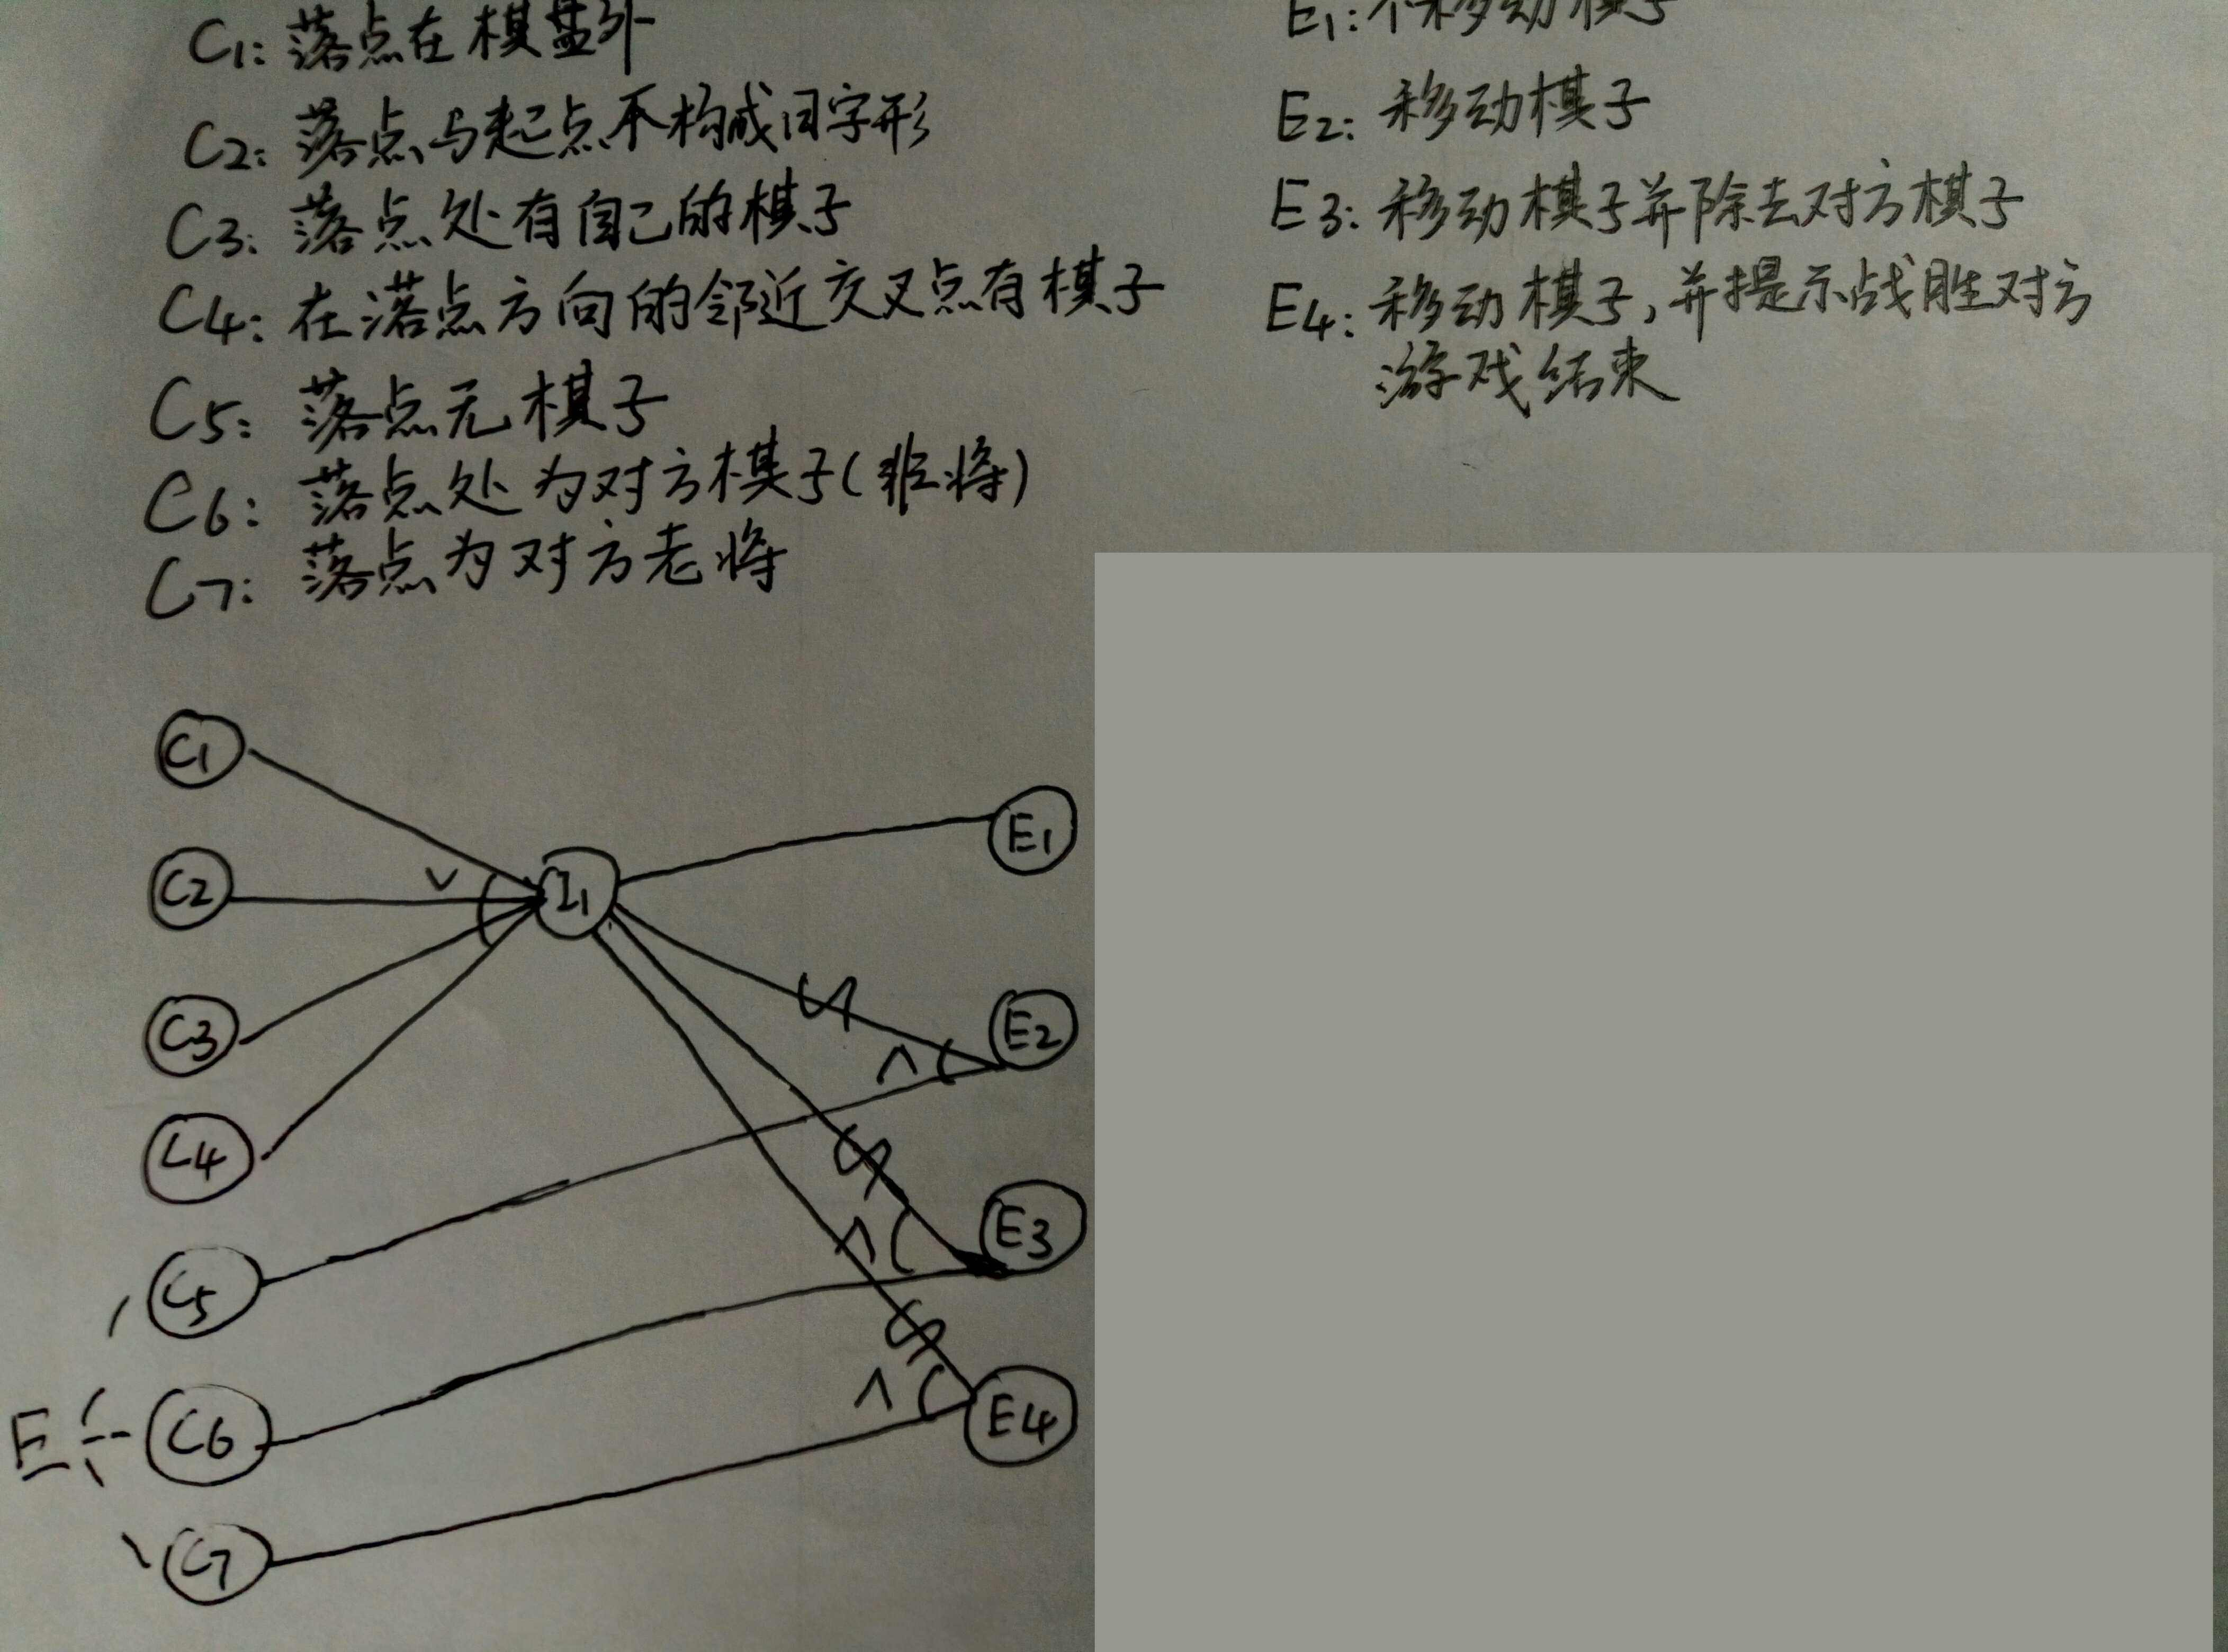 C1: 落点在棋盘外
C2: 落点与起点不构成日字形
C3: 落点处有自己的棋子
C4: 在落点方向的邻近交叉点有棋子
C5: 落点无棋子
C6: 落点处为对方棋子(非将)
C7: 落点为对方老将
E1: 不移动棋子
E2: 移动棋子
E3: 移动棋子并除去对方棋子
E4: 移动棋子,并提示战胜对方
游戏结束
C1
C2
C3
C4
C5
C6
C7
E
∨
I1
E1
E2
∧
E3
∧
E4
∧